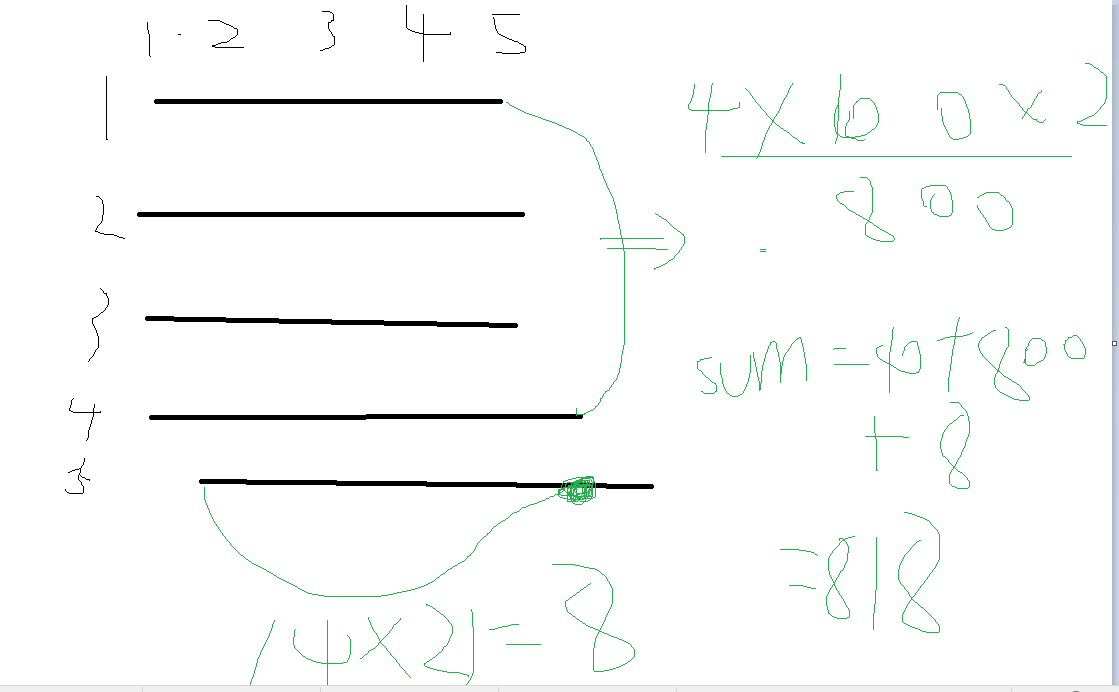 1 · 2 3 4 5
1
2
3
4
5
4 × 100 × 2
800
=
sum = 10 + 800
+ 8
= 818
(4×2) = 8